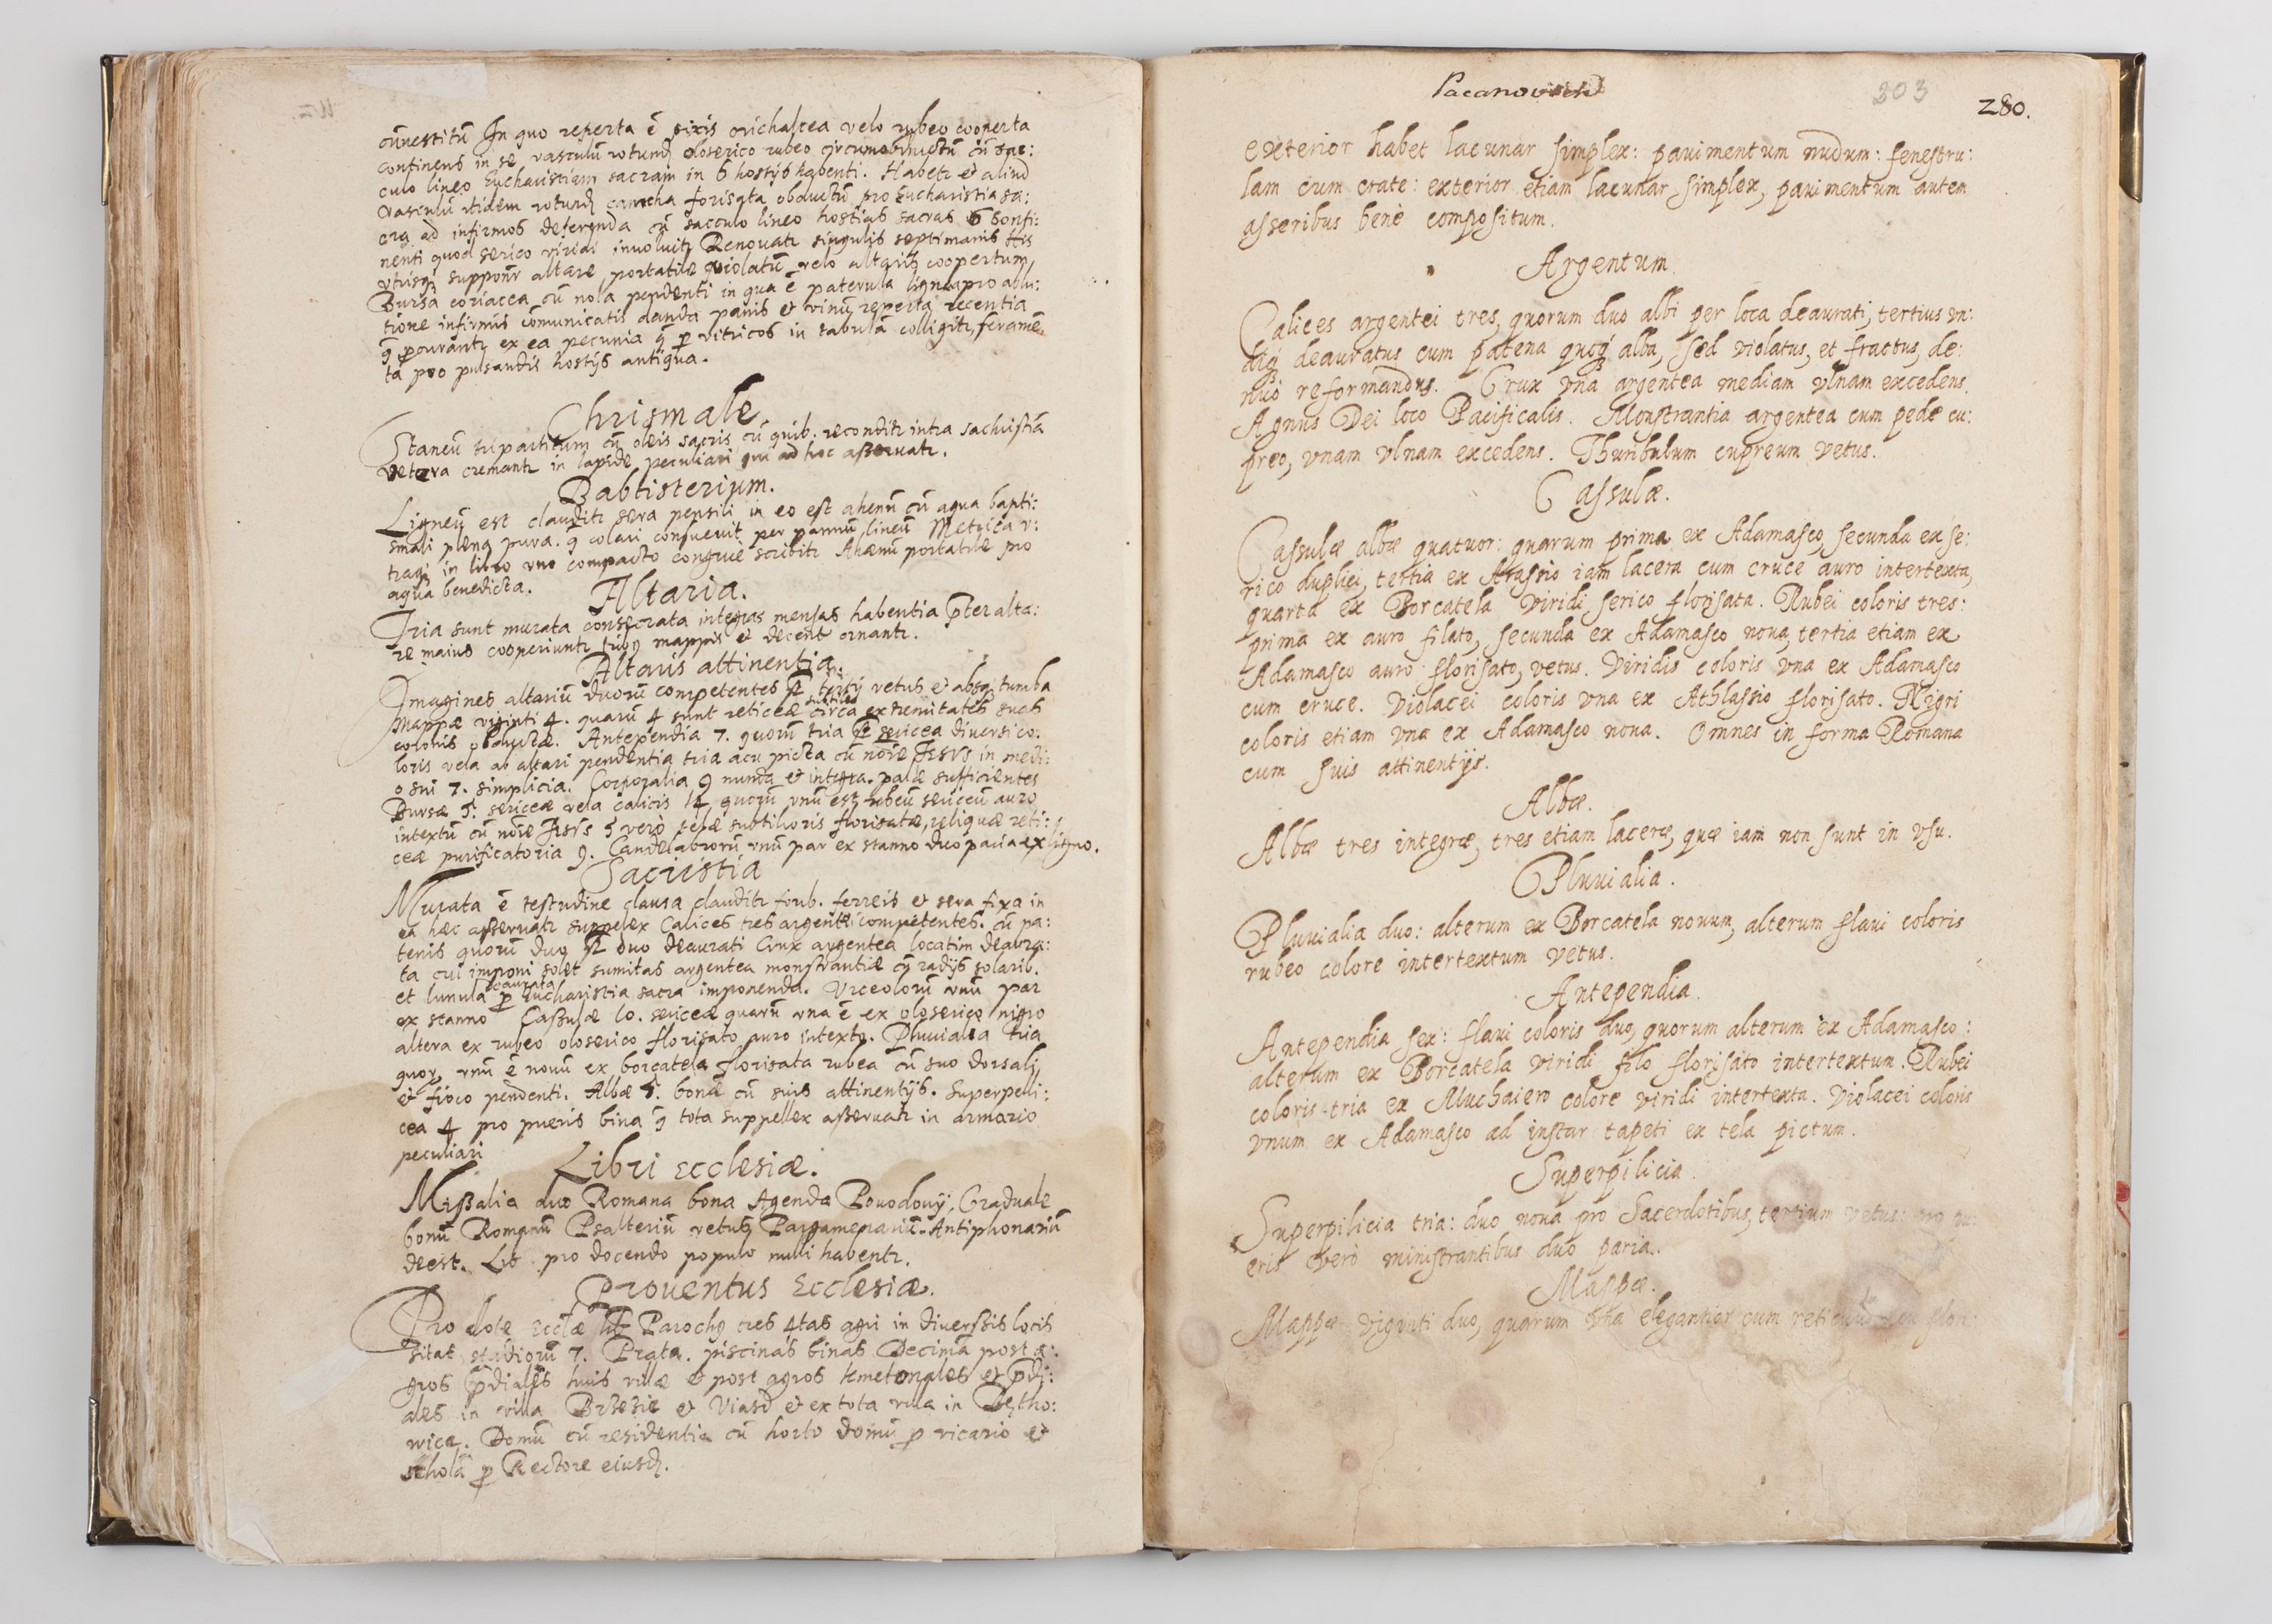 cũuestitũ In quo reperta ẽ pixis orichalcea velo rubeo cooperta
continens in se vasculũ rotund oloserico rubeo circumamictũ cũ sac:
culo lineo Eucharistiam sacram in 6 hostijs habenti. Habetr et aliud
vasculũ itidem rotund camcha florisata obductũ pro Eucharistia sa:
cra ad infirmos deferenda cũ sacculo lineo hostias sacras 6 conti:
nenti quod serico viridi involuitr Renouatr singulis septimanis His
utrisq supponr altare portatile violatũ velo altaris coopertum
Bursa coriacea cũ nola pendenti in qua ẽ paterula lignea pro ablu:
tione infirmis cõmunicatis danda panis et vinũ reperta recentia
q procurantr ex ea pecunia q p vitricos in tabula colligitr, feramẽ
ta pro pulsandis hostijs antiqua.
Chrismale
Staneũ tripartitum cũ oleis sacris cũ quib. reconditr intra sachristiã
vetera cremantr in lapide peculiari qui ad hoc asseruatr.
Babtisterium.
Ligneũ est clauditr sera pensili in eo est ahenũ cũ aqua bapti:
smali plenq pura. q colari consueuit per pannũ lineũ Metrica v:
traq in libro uno compacto congruè scribitr Ahenũ portatile pro
aqua benedicta.
Altaria.
Tria sunt murata consecrata integras mensas habentia Pter alta:
re maius cooperiuntr tribq mappis et decent ornantr.
Altaris attinentia.
Imagines altariũ duorũ competentes st tertij vetus et absq tumba
mappæ viginti 4. quarũ 4 sunt reticeæ circa extremitates suas
coloris obductæ. Antependia 7. quorũ tria st sericea diuersi co:
loris vela ab altari pendentia tria acu picta cũ noĩe Jesus in medi:
o sui 7. simplicia. Corporalia 9 munda et integra. palæ sufficientes
Bursæ 5. sericeæ vela calicis 14 quorũ unũ est rubeũ sericeũ auro
intextũ cũ noĩe Jesus 5 verò telæ subtilioris florisatæ, reliquæ reti:
ceæ purificatoria 9. Candelabrorũ unũ par ex stanno duo paria ex ligno.
Sacristia
Murata ẽ testudine clausa clauditr forib. ferreis et sera fixa in
ea hæc asseruatr suppelex Calices tres argentei competentes. cũ pa:
tenis quorũ duo st duo deaurati Crux argentea locatim deaura:
ta cui imponi solet sumitas argentea monstrantiæ cũ radijs solarib.
et lunula deaurata p Eucharistia sacra imponenda. Urceolorũ unũ par
ex stanno Cassulæ 10. sericeæ quarũ una ẽ ex oloserico nigro
altera ex rubeo oloserico florisato auro intexto. Pluuialia tria
quor, unũ ẽ nouũ ex borcatela florisata rubea cũ suo dorsali
et fioco pendenti. Albæ 5. bonæ cũ suis attinentijs. Superpelli:
cea 4 pro pueris bina q tota suppellex asseruatr in armario
peculiari
Libri Ecclesiæ.
Missalia duo Romana bona Agenda Pouodouij, Graduale
bonũ Romanũ Psalteriũ vetus Pargamenariũ. Antiphonariũ
deest. Lib pro docendo populo nulli habentr.
Prouentus Ecclesiæ.
Pro dote Ecclæ st Parochq tres 4tas agri in diuersis locis
sitas stadiorũ 7. Prata. piscinas binas Decima post a:
gros pdiales huis villæ et post agros kmetonales et pdi:
ales in villa Brzezie et Viasd et ex tota villa in
wice. Domũ cũ residentia cũ horto domũ p vicario et
schola p Rectore eiusd.
Pacanoviensis
203
280.
exterior habet lacunar simplex: pauimentum nudum: fenestru:
lam cum crate: exterior etiam lacunar simplex, pauimentum autem
asseribus benè compositum.
Argentum.
Calices argentei tres, quorum duo albi per loca deaurati, tertius un:
diq deauratus cum patena quoq alba, sed violatus, et fractus, de:
nuò reformandus. Crux una argentea mediam ulnam excedens.
Agnus Dei loco Pacificalis. Monstrantia argentea cum pede cu:
preo, unam ulnam excedens. Thuribulum cupreum vetus.
Cassulæ.
Cassulæ albæ quatuor: quarum prima ex Adamasco, secunda ex se:
rico duplici, tertia ex Atassio iam lacera cum cruce auro intertexta,
quarta ex Borcatela viridi serico florisata. Rubei coloris tres:
prima ex auro filato, secunda ex Adamasco noua, tertia etiam ex
Adamasco auro florisato, vetus. Viridis coloris una ex Adamasco
cum cruce. Violacei coloris una ex Athlassio florisato. Nigri
coloris etiam una ex Adamasco noua. Omnes in forma Romana
cum suis attinentijs.
Albæ.
Albæ tres integræ, tres etiam laceræ, quæ iam non sunt in usu.
Pluuialia.
Pluuialia duo: alterum ex Borcatela nouum, alterum flaui coloris
rubeo colore intertextum vetus.
Antependia.
Antependia sex: flaui coloris duo, quorum alterum ex Adamasco:
alterum ex Borcatela viridi filo florisato intertextum. Rubei
coloris tria ex Muchaiero colore viridi intertexta. Violacei coloris
unum ex Adamasco ad instar tapeti ex tela pictum.
Superpilicia.
Superpilicia tria: duo noua pro Sacerdotibus, tertium vetus: pro pu:
eris verò ministrantibus duo paria.
Mappæ.
Mappæ viginti duo, quarum una elegantior cum